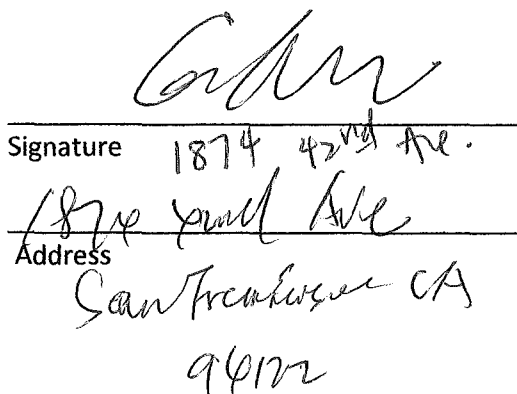 Signature 1874 42nd Ave.
1874 42nd Ave
Address
San Francisco CA
94122